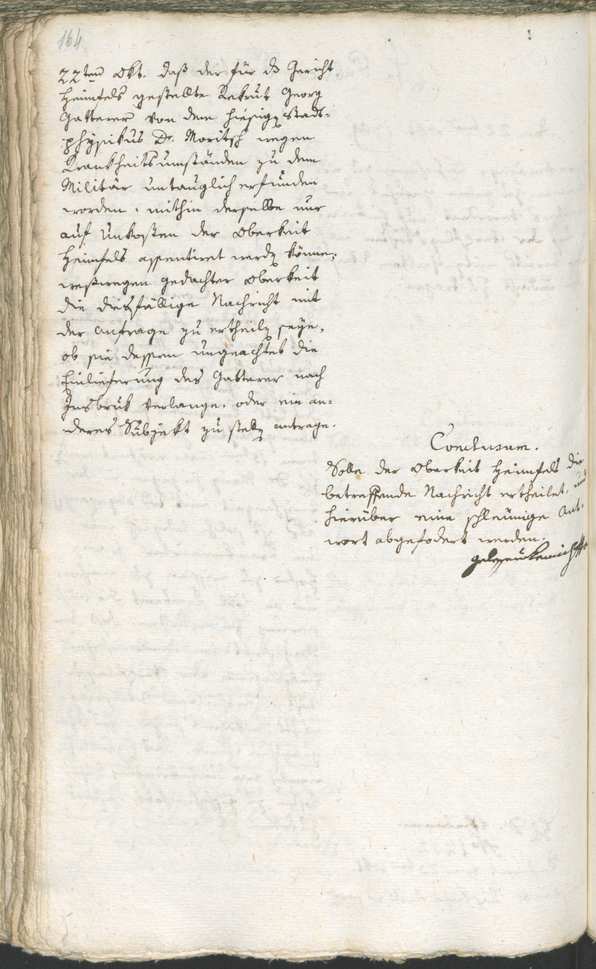 164
22ten Okt. daß der für ds Gericht
Heimfels gestellte Rekrut Georg
Gatterer von dem hiesigen Stadt-
physikus Dr. Moritsch wegen
Krankheitsumständen zu dem
Militär untauglich erfunden
worden, mithin derselbe nur
auf Unkosten der Oberkeit
Heimfels assentiret werden könne,
weßwegen gedachter Oberkeit
die diesfällige Nachricht mit
der Anfrage zu ertheilen seye,
ob sie dessem ungeachtet die
Einlieferung des Gatterer nach
Insbruk verlange, oder ein an-
deres Subjekt zu stelln antrage.
Conclusum.
Solle der Oberkeit Heimfels die
betreffende Nachricht ertheilet, und
hierüber eine schleunige Ant-
wort abgefodert werden.